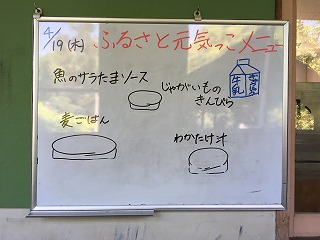 4/19(木) ふるさと元気っこメニュー
魚のサラたまソース
じゃがいもの
きんぴら
牛乳
麦ごはん
わかたけ汁